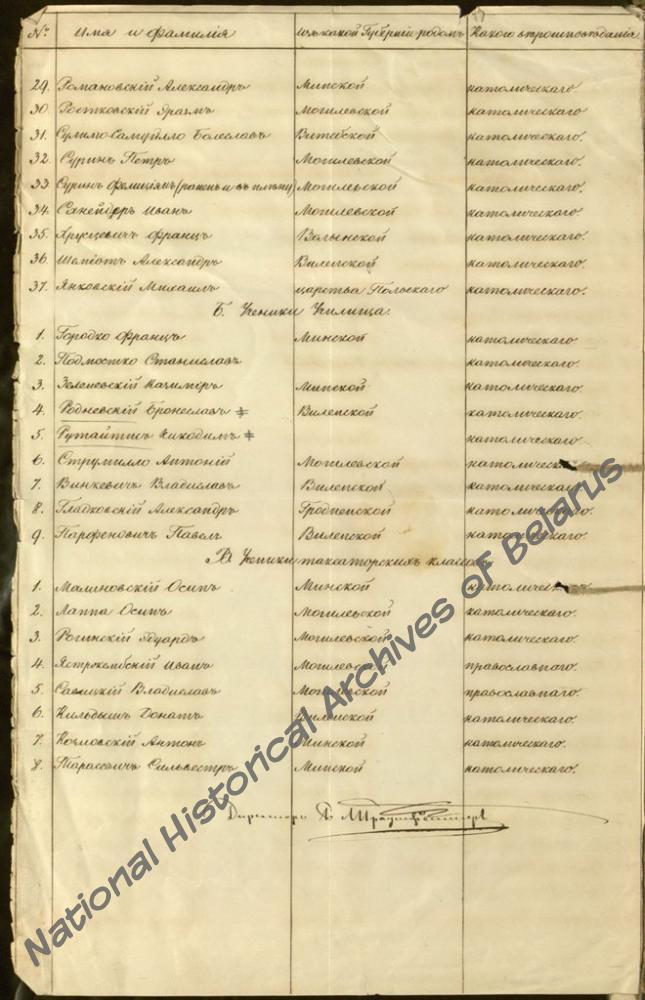 № Имя и фамилія Изъ какой Губерніи родомъ Какого вѣроисповѣданія
29. Романовскій Александръ Минской католическаго
30. Ростковскій Эразмъ Могилевской католическаго
31. Сулимо-Самуйлло Болеславъ Витебской католическаго.
32. Суринъ Петръ Могилевской католическаго.
33. Суринъ Фелиціянъ (раненъ и въ плѣну) Могилевской католическаго.
34. Иванъ Могилевской католическаго.
35. Хрусцевичъ Францъ Волынской католическаго.
36. Шеміотъ Александръ Виленской католическаго.
37. Янковскій Михаилъ царства Польскаго католическаго.
Б. Ученики Училища.
1. Городко Францъ Минской католическаго
2. Подмостко Станиславъ католическаго.
3. Зеленевскій Казимеръ Минской католическаго.
4. Родневскій Брониславъ Виленской католическаго.
5. Рутайтисъ Никодимъ католическаго.
6. Струмилло Антоній Могилевской католическаго
7. Винкевичъ Владиславъ Виленской католическаго
8. Гладковскій Александръ Гродненской католическаго
9. Парфеновичъ Павелъ Виленской католическаго.
В. Ученики таксаторскихъ классовъ
1. Малиновскій Осипъ Минской католическаго
2. Лаппа Осипъ Могилевской католическаго.
3. Рогинскій Эдуардъ Могилевской католическаго.
4. Ястржембскій Иванъ Могилевской православнаго.
5. Савицкій Владиславъ Могилевской православнаго.
6. Кильдышъ Донатъ Виленской католическаго.
7. Козловскій Антонъ Минской католическаго.
8. Тарасевичъ Сильвестръ Минской католическаго.
Директоръ
National Historical Archives of Belarus